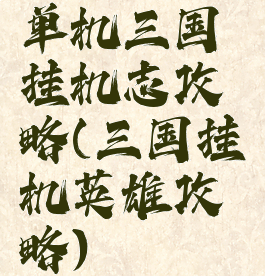 单机三国
挂机志攻
略(三国挂
机英雄攻
略)